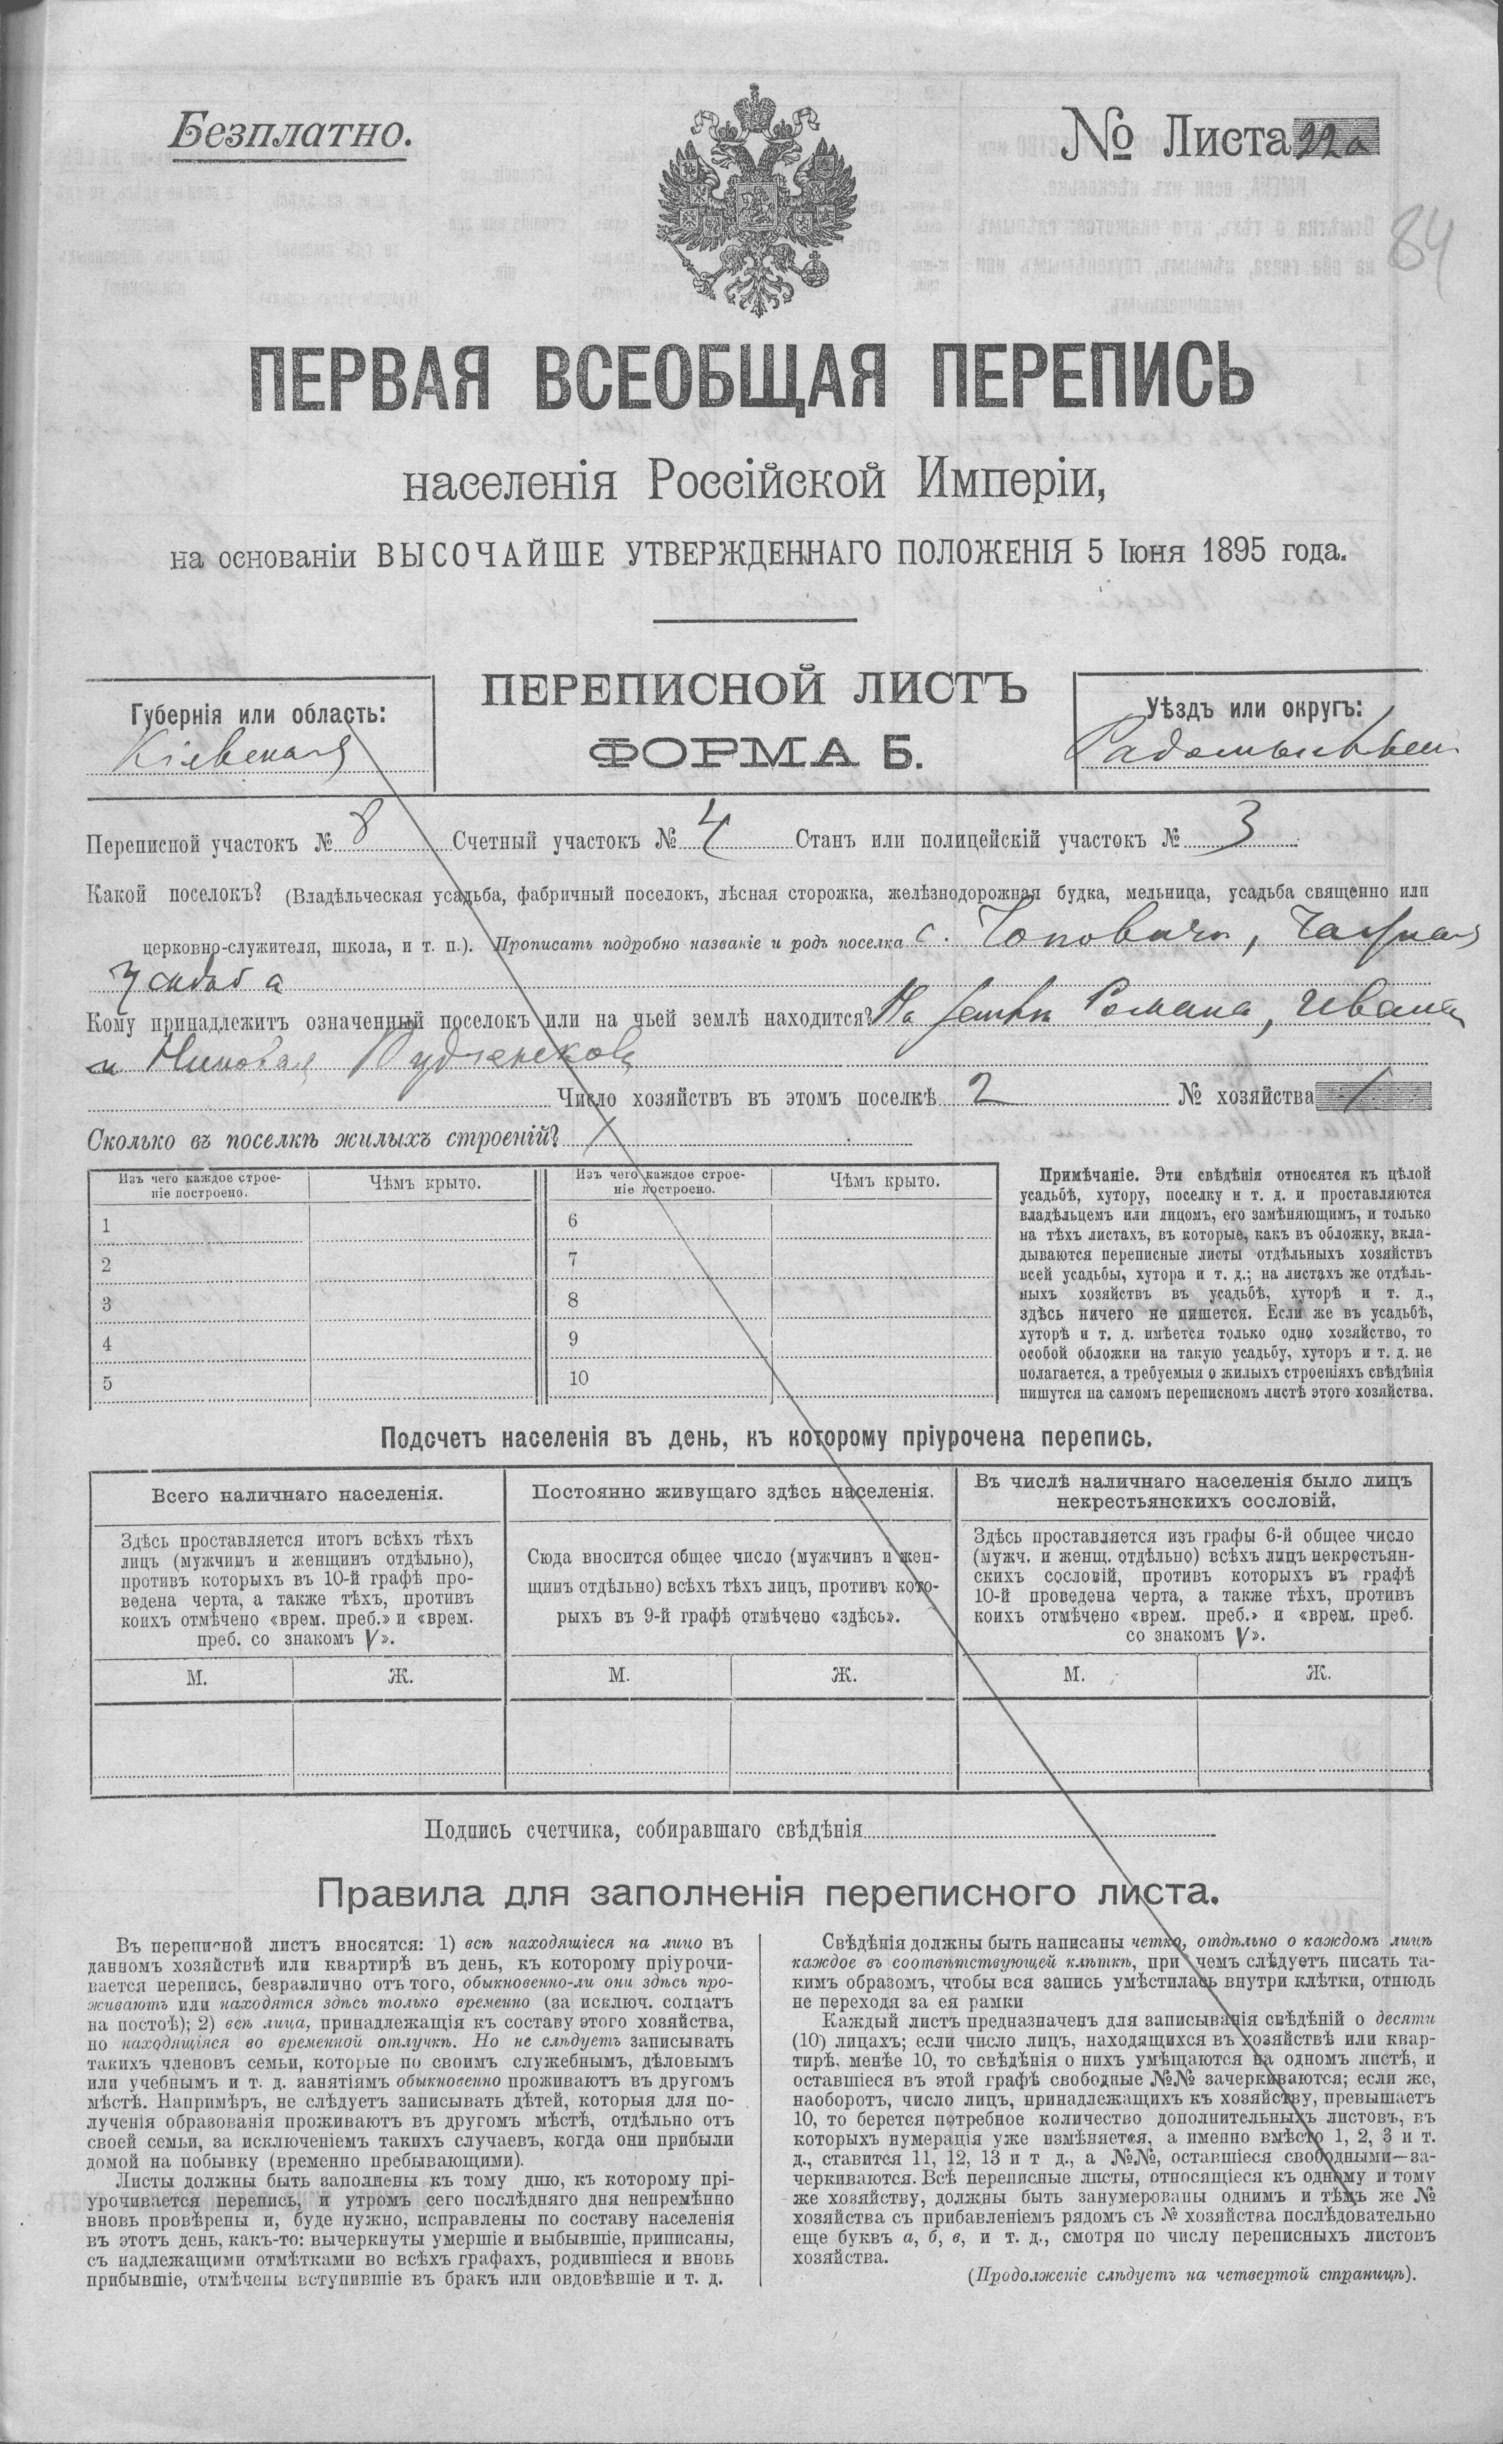 Безплатно.
№ Листа 22а
84
ПЕРВАЯ ВСЕОБЩАЯ ПЕРЕПИСЬ
населенія Россійской Имперіи,
на основаніи ВЫСОЧАЙШЕ УТВЕРЖДЕННАГО ПОЛОЖЕНІЯ 5 Іюня 1895 года.
ПЕРЕПИСНОЙ ЛИСТЪ
ФОРМА Б.
Губернія или область:
Кіевская
Уѣздъ или округъ:
Переписной участокъ № 8 Счетный участокъ № 4 Станъ или полицейскій участокъ № 3
Какой поселокъ? (Владѣльческая усадьба, фабричный поселокъ, лѣсная сторожка, желѣзнодорожная будка, мельница, усадьба священно или
церковно-служителя, школа, и т. п.). Прописать подробно названіе и родъ поселка с.
Усадьба
Кому принадлежитъ означенный поселокъ или на чьей землѣ находится? На землѣ Романа, Ивана
и
Число хозяйствъ въ этомъ поселкѣ 2 № хозяйства 1
Сколько въ поселкѣ жилыхъ строеній?
Изъ чего каждое строе-
ніе построено.
Чѣмъ крыто.
Изъ чего каждое строе-
ніе построено.
Чѣмъ крыто.
1
2
3
4
5
6
7
8
9
10
Примѣчаніе. Эти свѣдѣнія относятся къ цѣлой
усадьбѣ, хутору, поселку и т. д. и проставляются
владѣльцемъ или лицомъ, его замѣняющимъ, и только
на тѣхъ листахъ, въ которые, какъ въ обложку, вкла-
дываются переписные листы отдѣльныхъ хозяйствъ
всей усадьбы, хутора и т. д.; на листахъ же отдѣль-
ныхъ хозяйствъ въ усадьбѣ, хуторѣ и т. д.,
здѣсь ничего не пишется. Если же въ усадьбѣ,
хуторѣ и т. д. имѣется только одно хозяйство, то
особой обложки на такую усадьбу, хуторъ и т. д. не
полагается, а требуемыя о жилыхъ строеніяхъ свѣдѣнія
пишутся на самомъ переписномъ листѣ этого хозяйства.
Подсчетъ населенія въ день, къ которому пріурочена перепись.
Всего наличнаго населенія.
Здѣсь проставляется итогъ всѣхъ тѣхъ
лицъ (мужчинъ и женщинъ отдѣльно),
противъ которыхъ въ 10-й графѣ про-
ведена черта, а также тѣхъ, противъ
коихъ отмѣчено «врем. преб.» и «врем.
преб. со знакомъ V».
М.
Ж.
Постоянно живущаго здѣсь населенія.
Сюда вносится общее число (мужчинъ и жен-
щинъ отдѣльно) всѣхъ тѣхъ лицъ, противъ кото-
рыхъ въ 9-й графѣ отмѣчено «здѣсь».
М.
Ж.
Въ числѣ наличнаго населенія было лицъ
некрестьянскихъ сословій.
Здѣсь проставляется изъ графы 6-й общее число
(мужч. и женщ. отдѣльно) всѣхъ лицъ некрестьян-
скихъ сословій, противъ которыхъ въ графѣ
10-й проведена черта, а также тѣхъ, противъ
коихъ отмѣчено «врем. преб.» и «врем. преб.
со знакомъ V».
М.
Ж.
Подпись счетчика, собиравшаго свѣдѣнія
Правила для заполненія переписного листа.
Въ переписной листъ вносятся: 1) всѣ находящіеся на лицо въ
данномъ хозяйствѣ или квартирѣ въ день, къ которому пріурочи-
вается перепись, безразлично отъ того, обыкновенно-ли они здѣсь про-
живаютъ или находятся здѣсь только временно (за исключ. солдатъ
на постоѣ); 2) всѣ лица, принадлежащія къ составу этого хозяйства,
но находящіяся во временной отлучкѣ. Но не слѣдуетъ записывать
такихъ членовъ семьи, которые по своимъ служебнымъ, дѣловымъ
или учебнымъ и т. д. занятіямъ обыкновенно проживаютъ въ другомъ
мѣстѣ. Напримѣръ, не слѣдуетъ записывать дѣтей, которыя для по-
лученія образованія проживаютъ въ другомъ мѣстѣ, отдѣльно отъ
своей семьи, за исключеніемъ такихъ случаевъ, когда они прибыли
домой на побывку (временно пребывающими).
Листы должны быть заполнены къ тому дню, къ которому прі-
урочивается перепись, и утромъ сего послѣдняго дня непремѣнно
вновь провѣрены и, буде нужно, исправлены по составу населенія
въ этотъ день, какъ-то: вычеркнуты умершіе и выбывшіе, приписаны,
съ надлежащими отмѣтками во всѣхъ графахъ, родившіеся и вновь
прибывшіе, отмѣчены вступившіе въ бракъ или овдовѣвшіе и т. д.
Свѣдѣнія должны быть написаны четко, отдѣльно о каждомъ лицѣ
каждое въ соотвѣтствующей клѣткѣ, при чемъ слѣдуетъ писать та-
кимъ образомъ, чтобы вся запись умѣстилась внутри клѣтки, отнюдь
не переходя за ея рамки
Каждый листъ предназначенъ для записыванія свѣдѣній о десяти
(10) лицахъ; если число лицъ, находящихся въ хозяйствѣ или квар-
тирѣ, менѣе 10, то свѣдѣнія о нихъ умѣщаются на одномъ листѣ, и
оставшіеся въ этой графѣ свободные №№ зачеркиваются; если же,
наоборотъ, число лицъ, принадлежащихъ къ хозяйству, превышаетъ
10, то берется потребное количество дополнительныхъ листовъ, въ
которыхъ нумерація уже измѣняется, а именно вмѣсто 1, 2, 3 и т.
д., ставится 11, 12, 13 и т д., а №№, оставшіеся свободными—за-
черкиваются. Всѣ переписные листы, относящіеся къ одному и тому
же хозяйству, должны быть занумерованы однимъ и тѣмъ же №
хозяйства съ прибавленіемъ рядомъ съ № хозяйства послѣдовательно
еще буквъ а, б, в, и т. д., смотря по числу переписныхъ листовъ
хозяйства.
(Продолженіе слѣдуетъ на четвертой страницѣ).